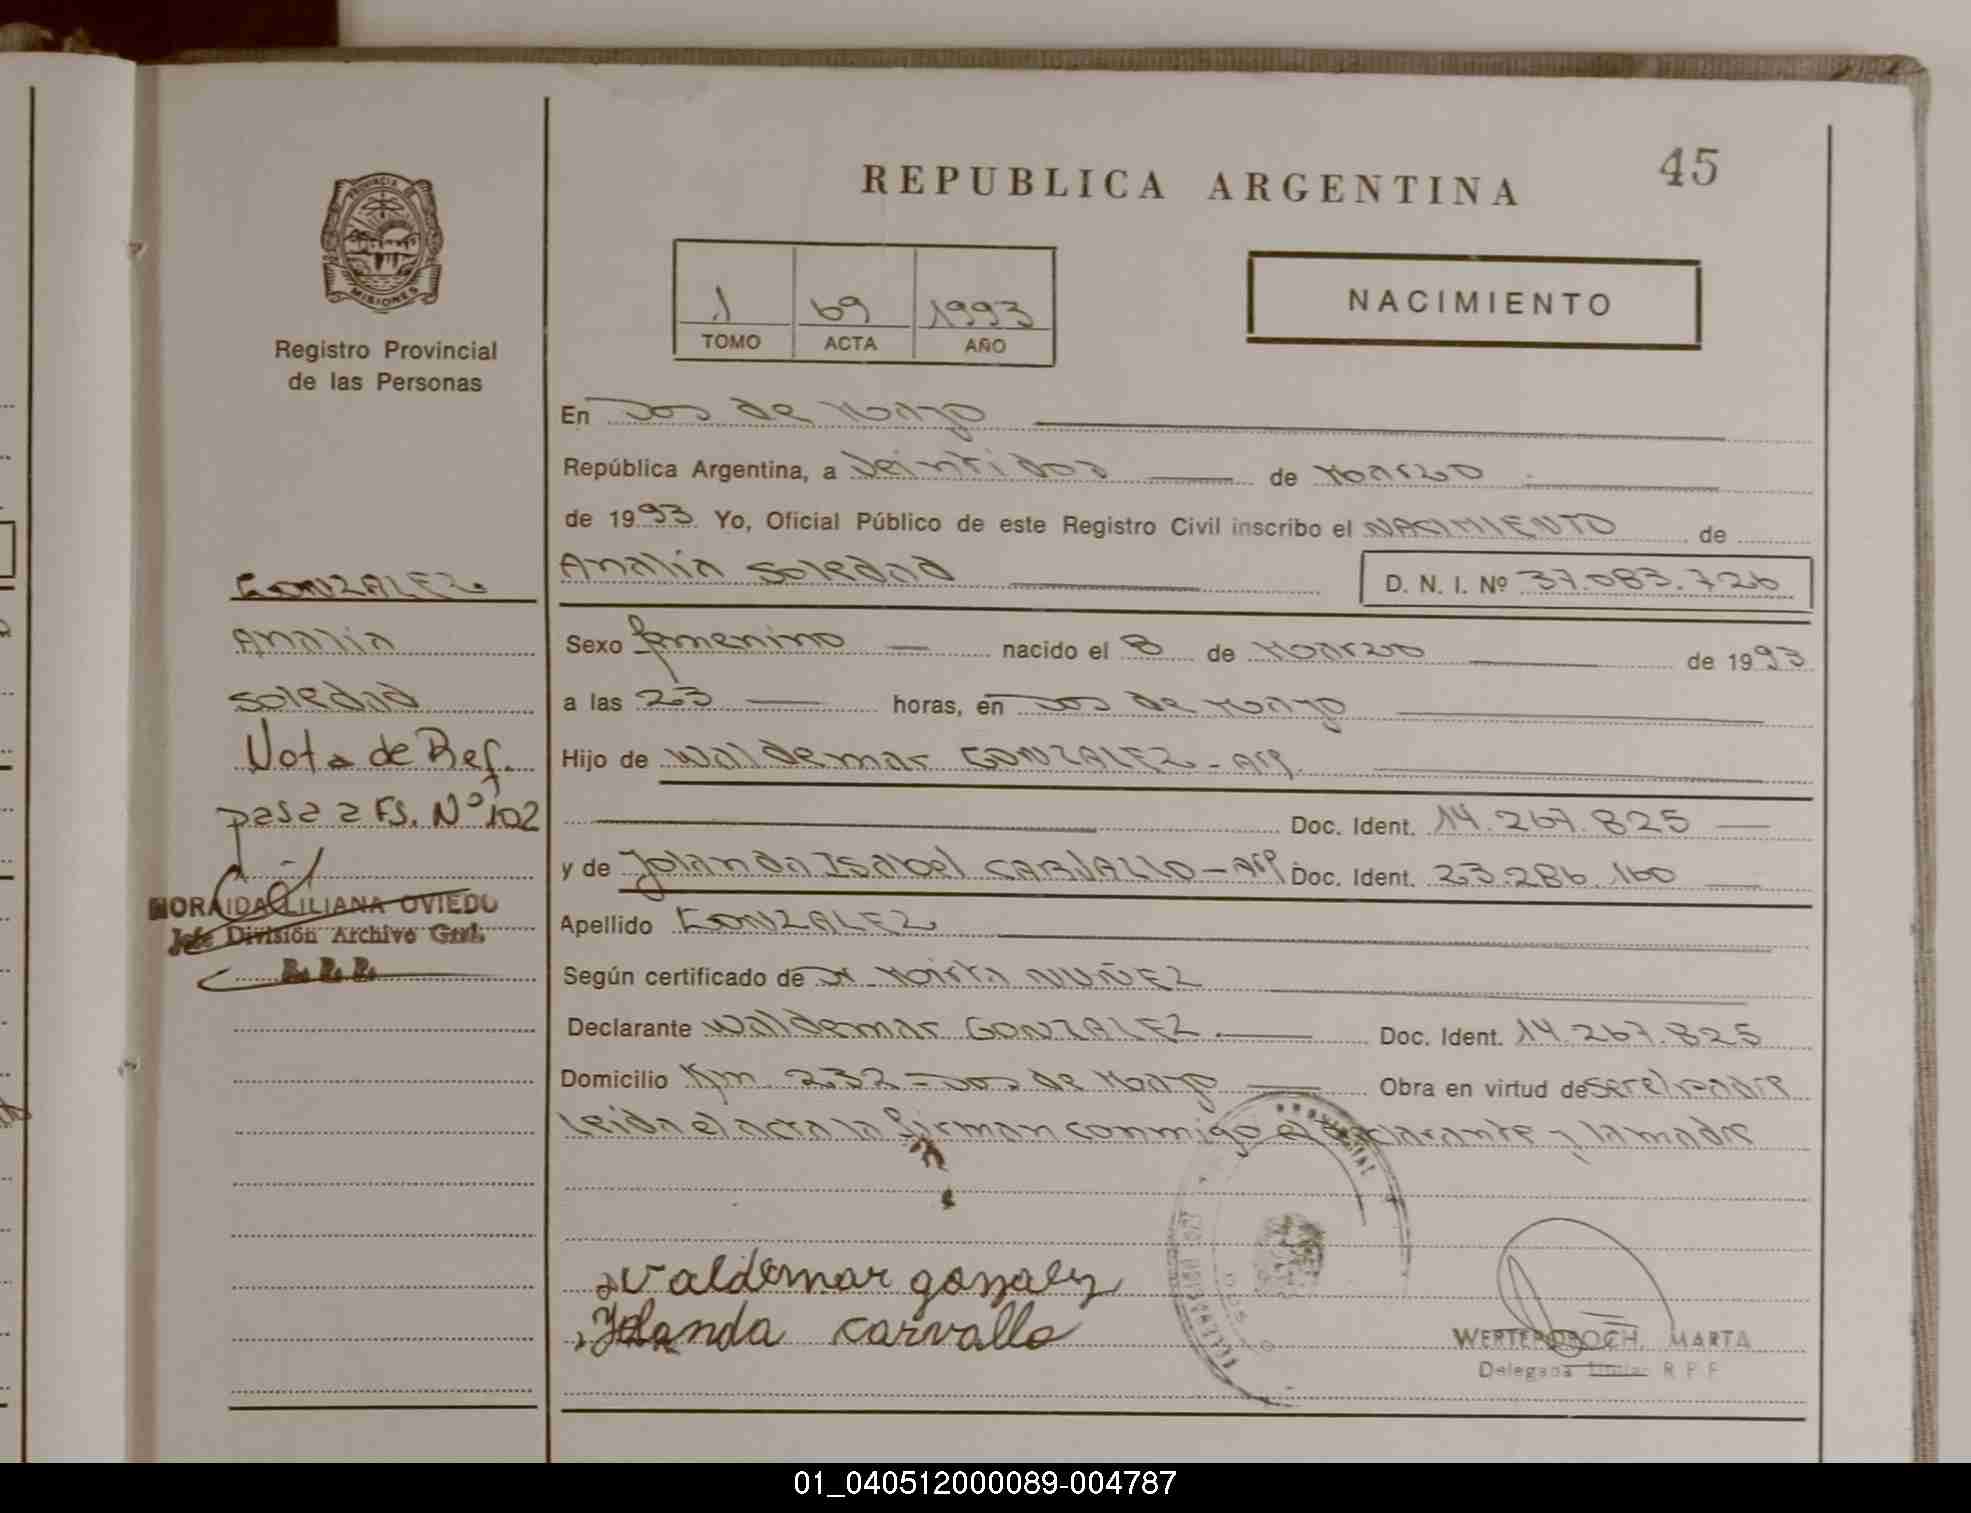 REPUBLICA ARGENTINA
45
PROVINCIA DE
MISIONES
Registro Provincial
de las Personas
1 69 1993
TOMO ACTA AÑO
NACIMIENTO
En Dos de Mayo
República Argentina, a veintidos de Marzo
de 1993 Yo, Oficial Público de este Registro Civil inscribo el NACIMIENTO de
Analia Soledad D. N. I. Nº 37.083.726
Sexo femenino nacido el 8 de Marzo de 1993
a las 23 horas, en Dos de Mayo
Hijo de Waldemar GONZALEZ - Arg.
Doc. Ident. 14.267.825
y de Yolanda Isabel CARVALLO - Arg Doc. Ident. 23.286.160
Apellido GONZALEZ
Según certificado de NUÑEZ
Declarante Waldemar GONZALEZ Doc. Ident. 14.267.825
Domicilio Km 232 - Dos de Mayo Obra en virtud de ser el padre
Leida el acta la firman conmigo el declarante y la madre
Waldemar gonzalez
Yolanda carvallo
MARTA
Delegada Titular R P P
GONZALEZ
Analia
Soledad
Nota de Ref.
pasa a FS. Nº 102
LILIANA OVIEDO
Jefe División Archivo Gral.
R. P. P.
01_040512000089-004787